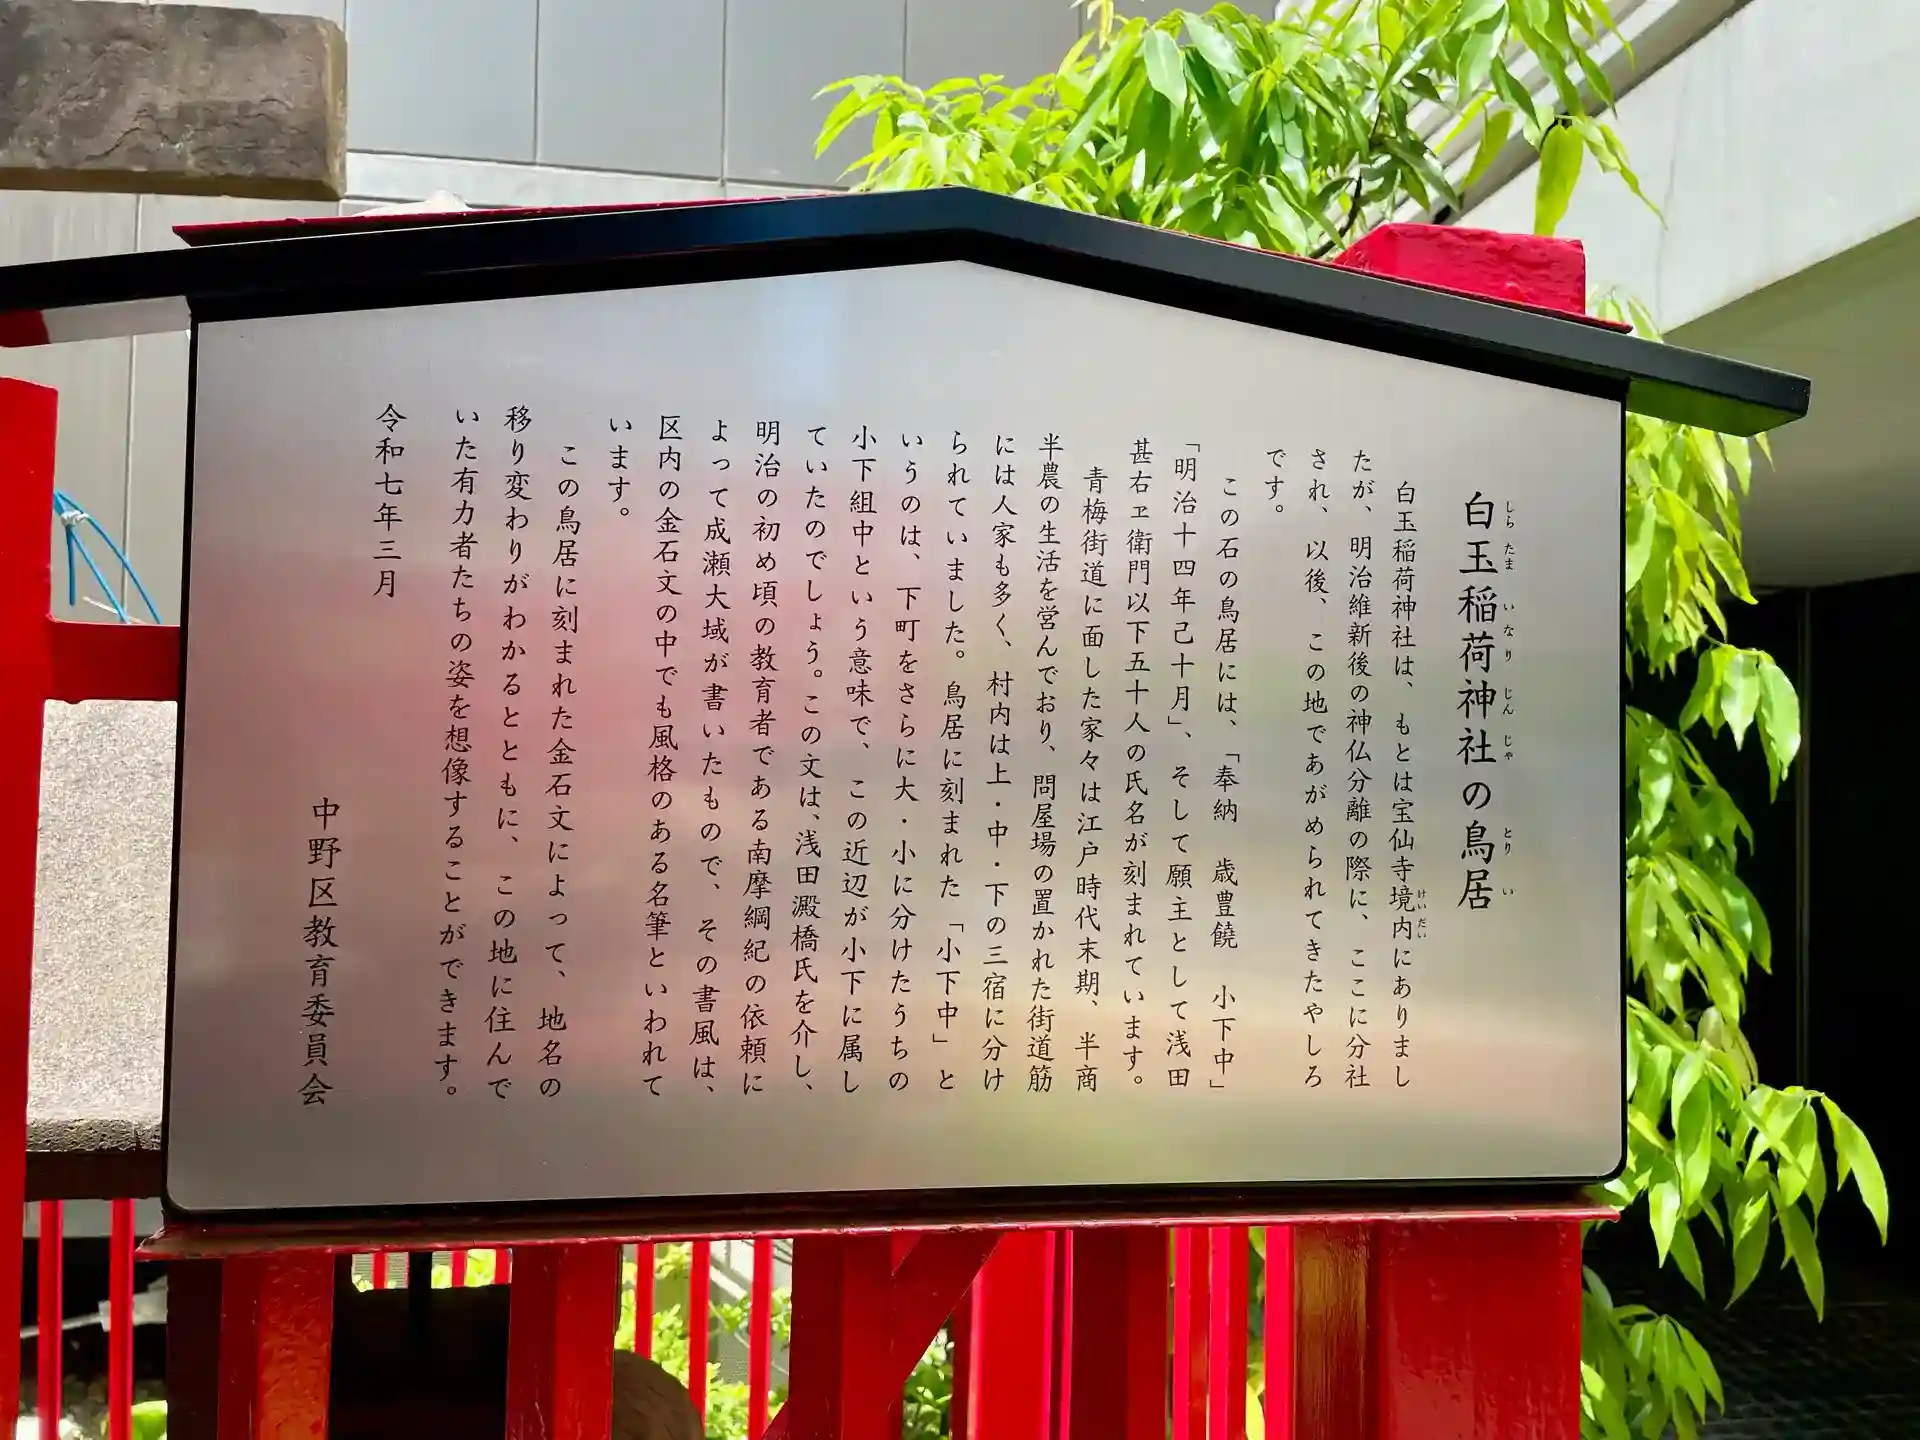 白玉稲荷神社の鳥居
白玉稲荷神社は、もとは宝仙寺境内にありまし
たが、明治維新後の神仏分離の際に、ここに分社
され、以後、この地であがめられてきたやしろ
です。
この石の鳥居には、「奉納　歳豊饒　小下中」
「明治十四年己十月」、そして願主として浅田
甚右ヱ衛門以下五十人の氏名が刻まれています。
青梅街道に面した家々は江戸時代末期、半商
半農の生活を営んでおり、問屋場の置かれた街道筋
には人家も多く、村内は上・中・下の三宿に分け
られていました。鳥居に刻まれた「小下中」と
いうのは、下町をさらに大・小に分けたうちの
小下組中という意味で、この近辺が小下に属し
ていたのでしょう。この文は、浅田澱橋氏を介し、
明治の初め頃の教育者である南摩綱紀の依頼に
よって成瀬大域が書いたもので、その書風は、
区内の金石文の中でも風格のある名筆といわれて
います。
この鳥居に刻まれた金石文によって、地名の
移り変わりがわかるとともに、この地に住んで
いた有力者たちの姿を想像することができます。
令和七年三月
中野区教育委員会